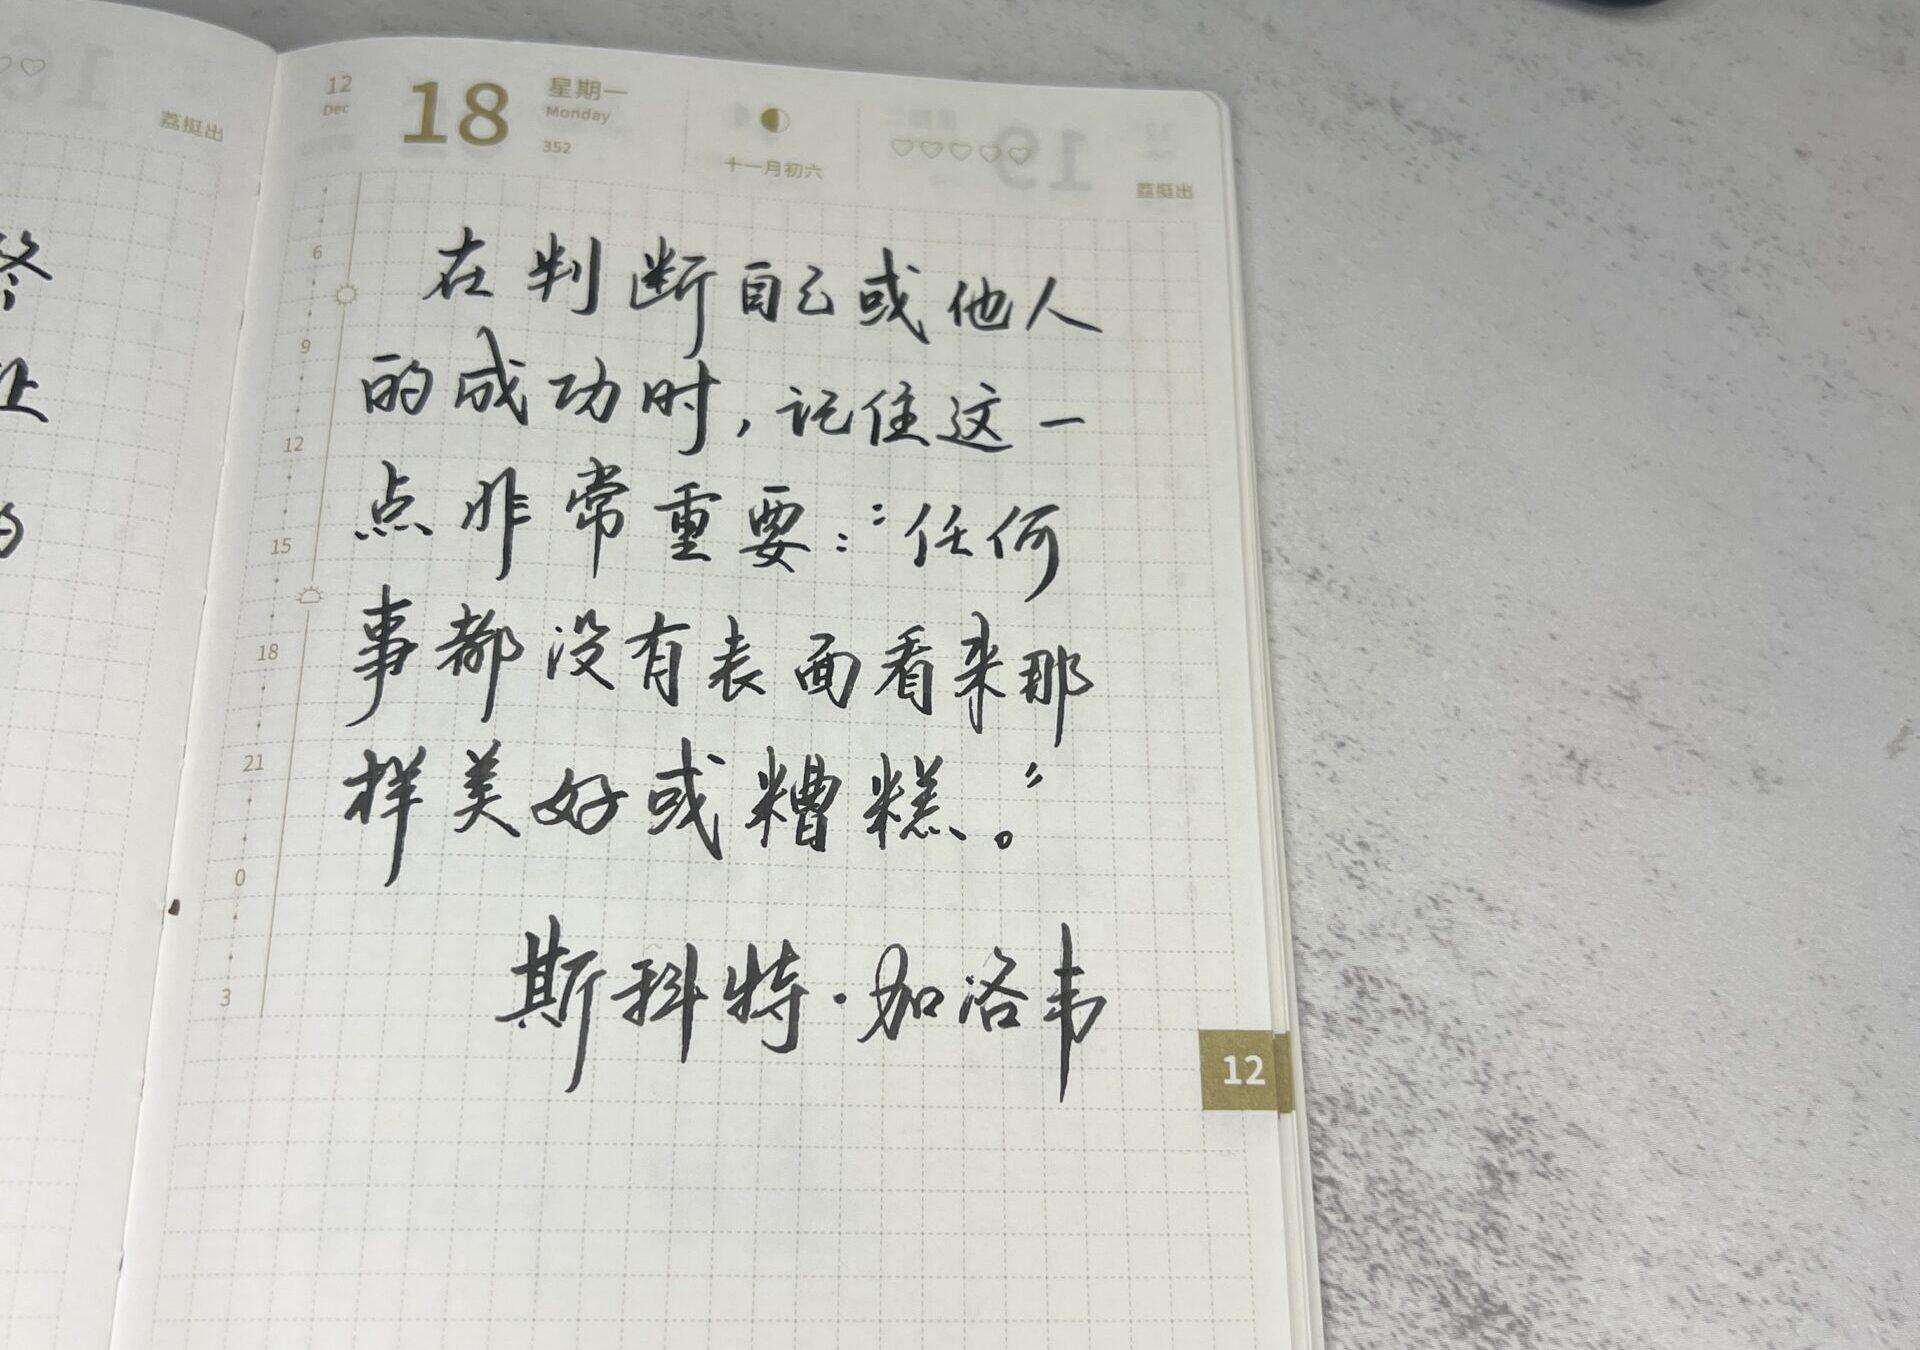 荔挺出
12
Dec
18
星期一
Monday
352
十一月初六
荔挺出
6
9
12
15
18
21
0
3
在判断自己或他人
的成功时，记住这一
点非常重要：“任何
事都没有表面看来那
样美好或糟糕。”
斯科特·加洛韦
12